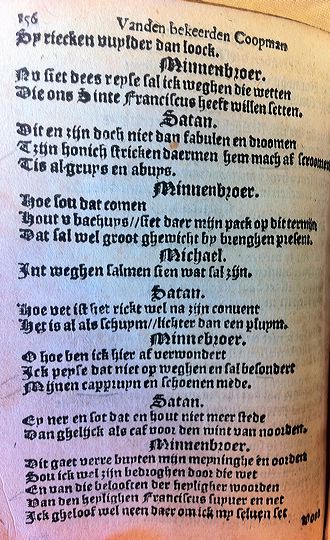 156
Vanden bekeerden Coopman
Sy riecken vuylder dan loock.
Minnenbroer.
Nu siet dees reyse sal ick weghen die wetten
Die ons Sinte Franciscus heeft willen setten.
Satan.
Dit en zijn doch niet dan fabulen en droomen
T zijn honich stricken daermen hem mach af scroomen
Tis al gruys en abuys.
Minnenbroer.
Hoe sou dat comen
Hout v bachuys//siet daer mijn pack op dit termijn
Dat sal wel groot ghewicht by brenghen present.
Michael.
Int weghen salmen sien wat sal zijn.
Satan.
Hoe vet ist het rickt wel na zijn conuent
Het is al als schuym//lichter dan een pluym.
Minnebroer.
O hoe ben ick hier af verwondert
Ick peyse dat niet op weghen en sal besondert
Mijnen cappruyn en schoenen mede.
Satan.
Ey ner en sot dat en hout niet meer stede
Dan ghelijck als caf voor den wint van noorden.
Minnenbroer.
Dit gaet verre buyten mijn meyninghe en oorden
Sou ick wel zijn bedroghen door die wet
En van die beloosten der heyligher woorden
Van den heylighen Franciscus supuer en net
Ick gheloof wel neen daer om ick my seluen set